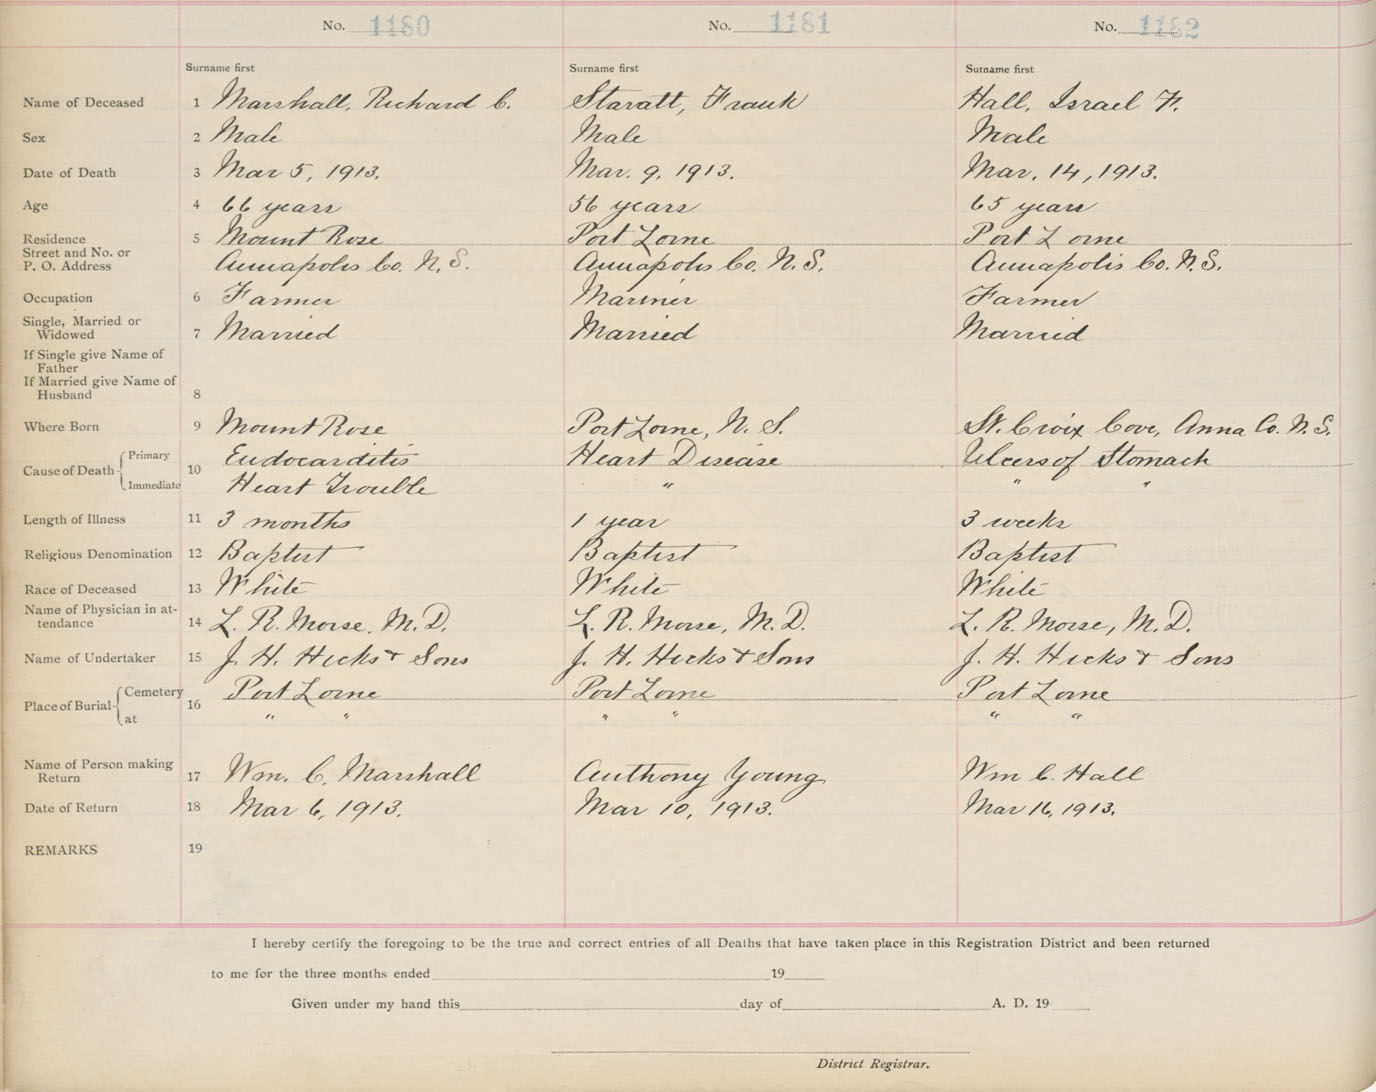 No. 1180 No. 1181 No. 1182
Surname first Surname first Surname first
Name of Deceased 1 Marshall, Richard C. Staratt, Frank Hall, Israel F.
Sex 2 Male Male Male
Date of Death 3 Mar 5, 1913. Mar. 9, 1913. Mar. 14, 1913.
Age 4 66 years 56 years 65 years
Residence 5 Mount Rose Port Lorne Port Lorne
Street and No. or
P. O. Address Annapolis Co. N.S. Annapolis Co. N.S. Annapolis Co. N.S.
Occupation 6 Farmer Mariner Farmer
Single, Married or
Widowed 7 Married Married Married
If Single give Name of
Father
If Married give Name of
Husband 8
Where Born 9 Mount Rose Port Lorne, N. S. St. Croix Cove, Anna Co. N.S.
Cause of Death Primary 10 Endocarditis Heart Disease Ulcers of Stomach
Immediate Heart Trouble " " "
Length of Illness 11 3 months 1 year 3 weeks
Religious Denomination 12 Baptist Baptist Baptist
Race of Deceased 13 White White White
Name of Physician in at-
tendance 14 L. R. Morse, M.D. L. R. Morse, M.D. L. R. Morse, M.D.
Name of Undertaker 15 J. H. Hicks & Sons J. H. Hicks & Sons J. H. Hicks & Sons
Place of Burial Cemetery 16 Port Lorne Port Lorne Port Lorne
at " " " " " "
Name of Person making
Return 17 Wm. C. Marshall Anthony Young Wm C. Hall
Date of Return 18 Mar 6, 1913. Mar 10, 1913. Mar 16, 1913.
REMARKS 19
I hereby certify the foregoing to be the true and correct entries of all Deaths that have taken place in this Registration District and been returned
to me for the three months ended 19
Given under my hand this day of A. D. 19
District Registrar.